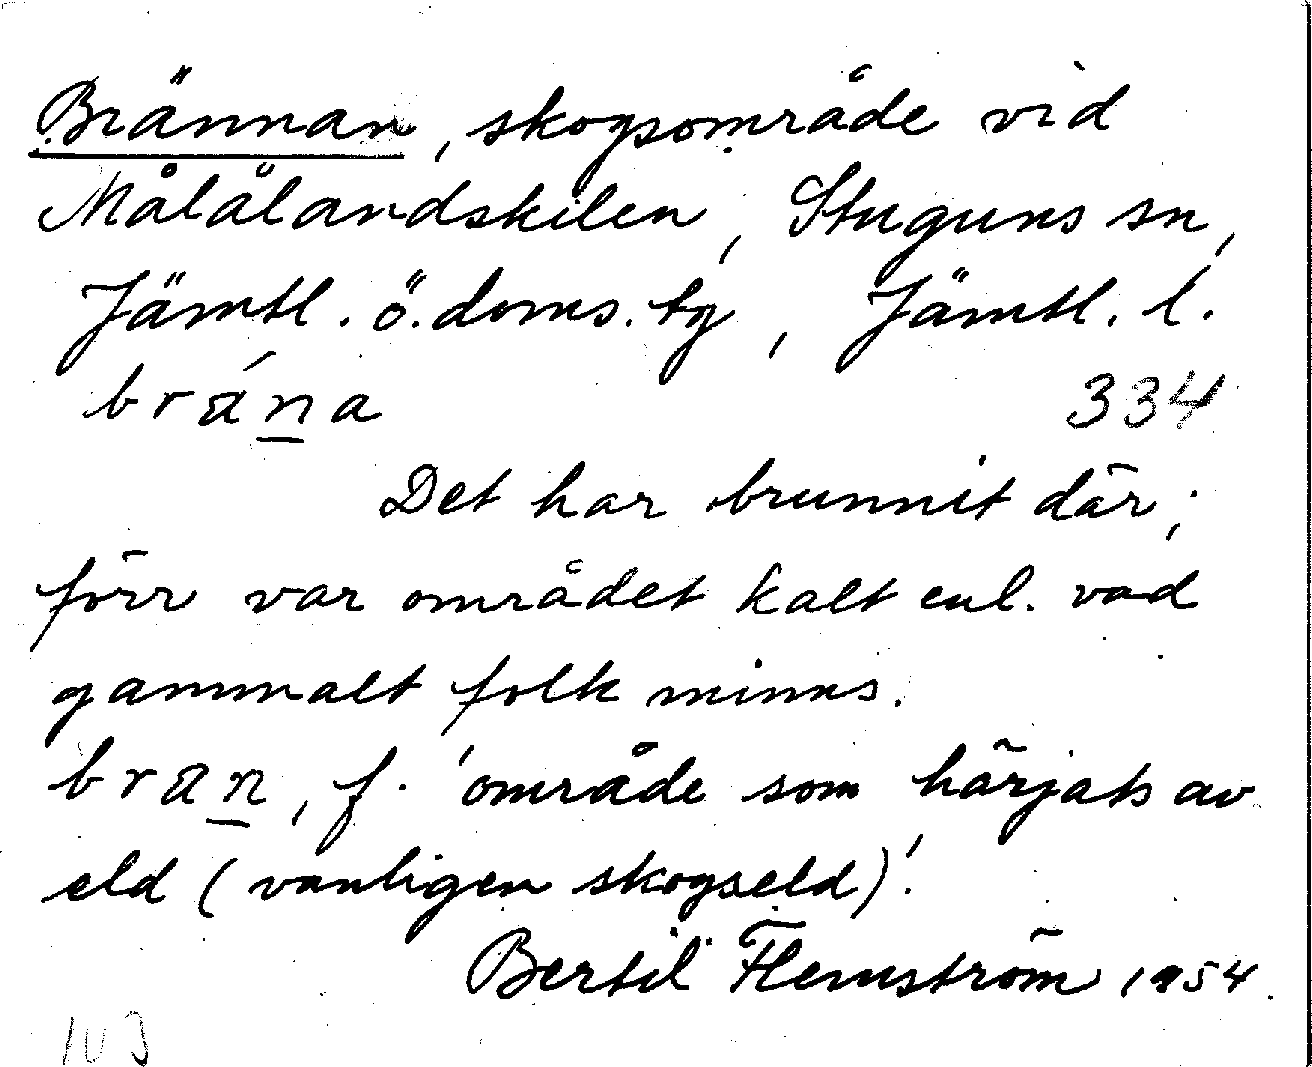 Brännan, skogsområde vid
Målålandskilen, Stuguns sn,
Jämtl. ö. doms. tg, Jämtl. l.
brána 334
Det har brunnit där;
förr var området kalt enl. vad
gammalt folk minns.
bran, f. 'område som härjats av
eld (vanligen skogseld)'.
Bertil Flemström 1954.
103